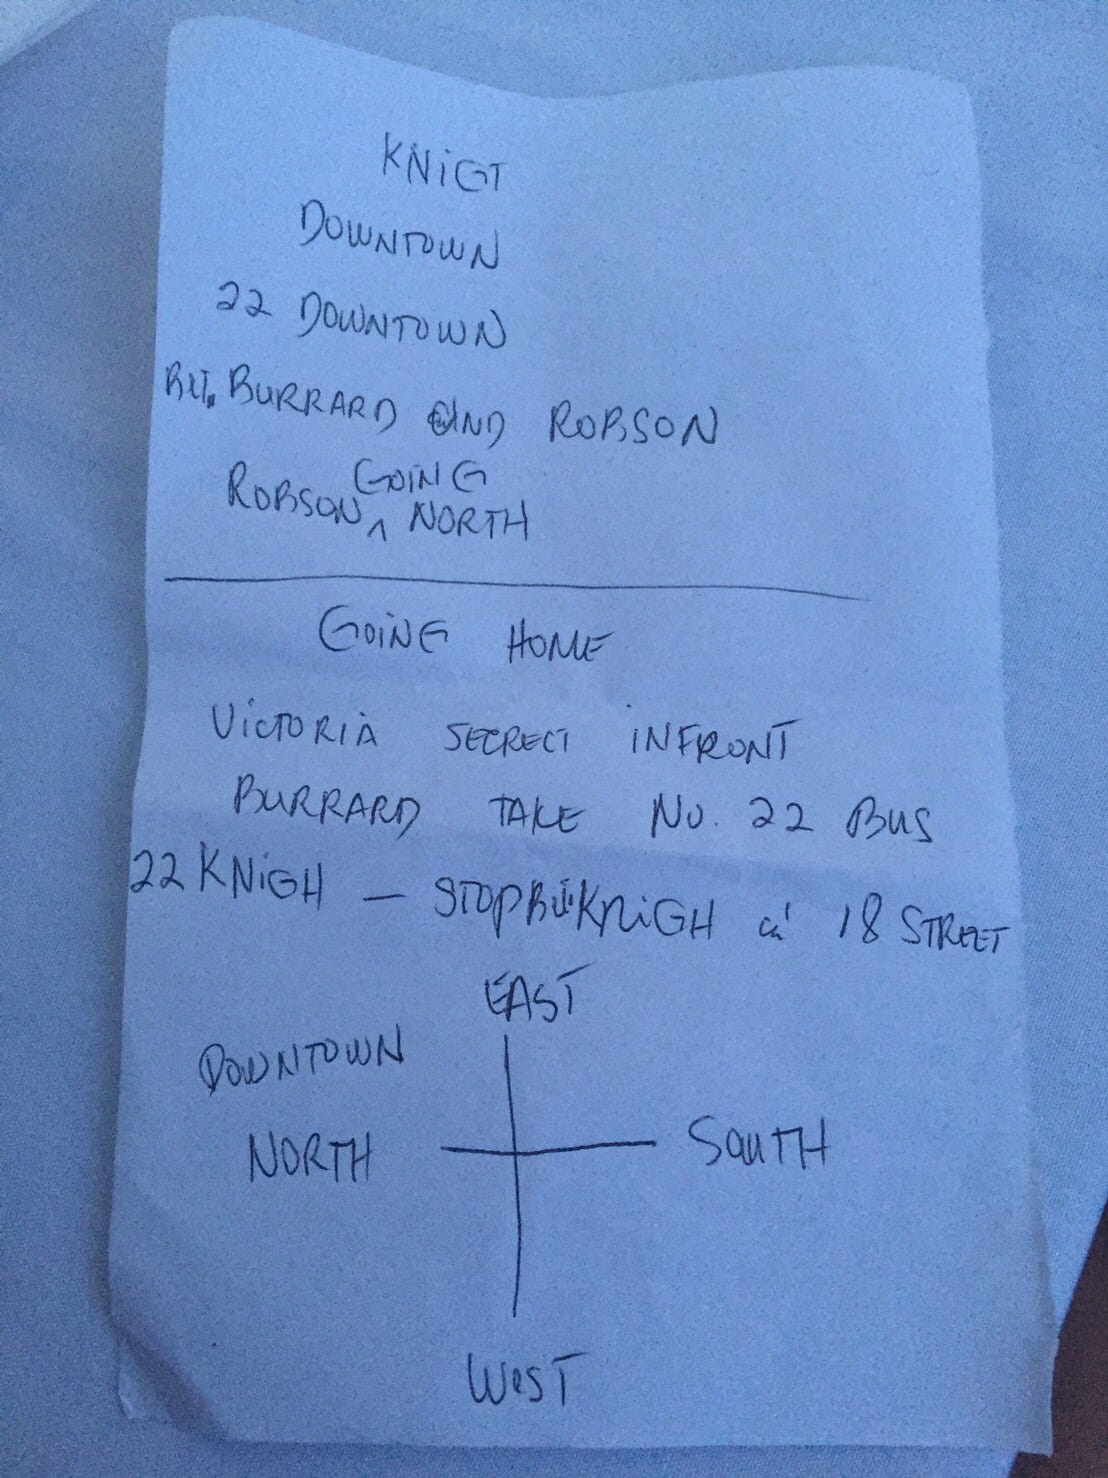 KNIGT
DOWNTOWN
22 DOWNTOWN
BURRARD AND ROBSON
ROBSON GOING NORTH
GOING HOME
VICTORIA SECRECT INFRONT
BURRARD TAKE NO. 22 BUS
22 KNIGH - STOP KNIGH 18 STREET
EAST
DOWNTOWN
NORTH SOUTH
WEST